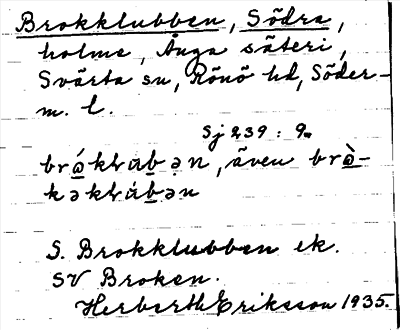 Brokklubben, Södra,
holme, Ånga säteri,
Svärta sn, Rönö hd, Söder-
m. l.
Sj 239 : 9
även
S. Brokklubben ek.
SV Broken.
Herbert Eriksson 1935.